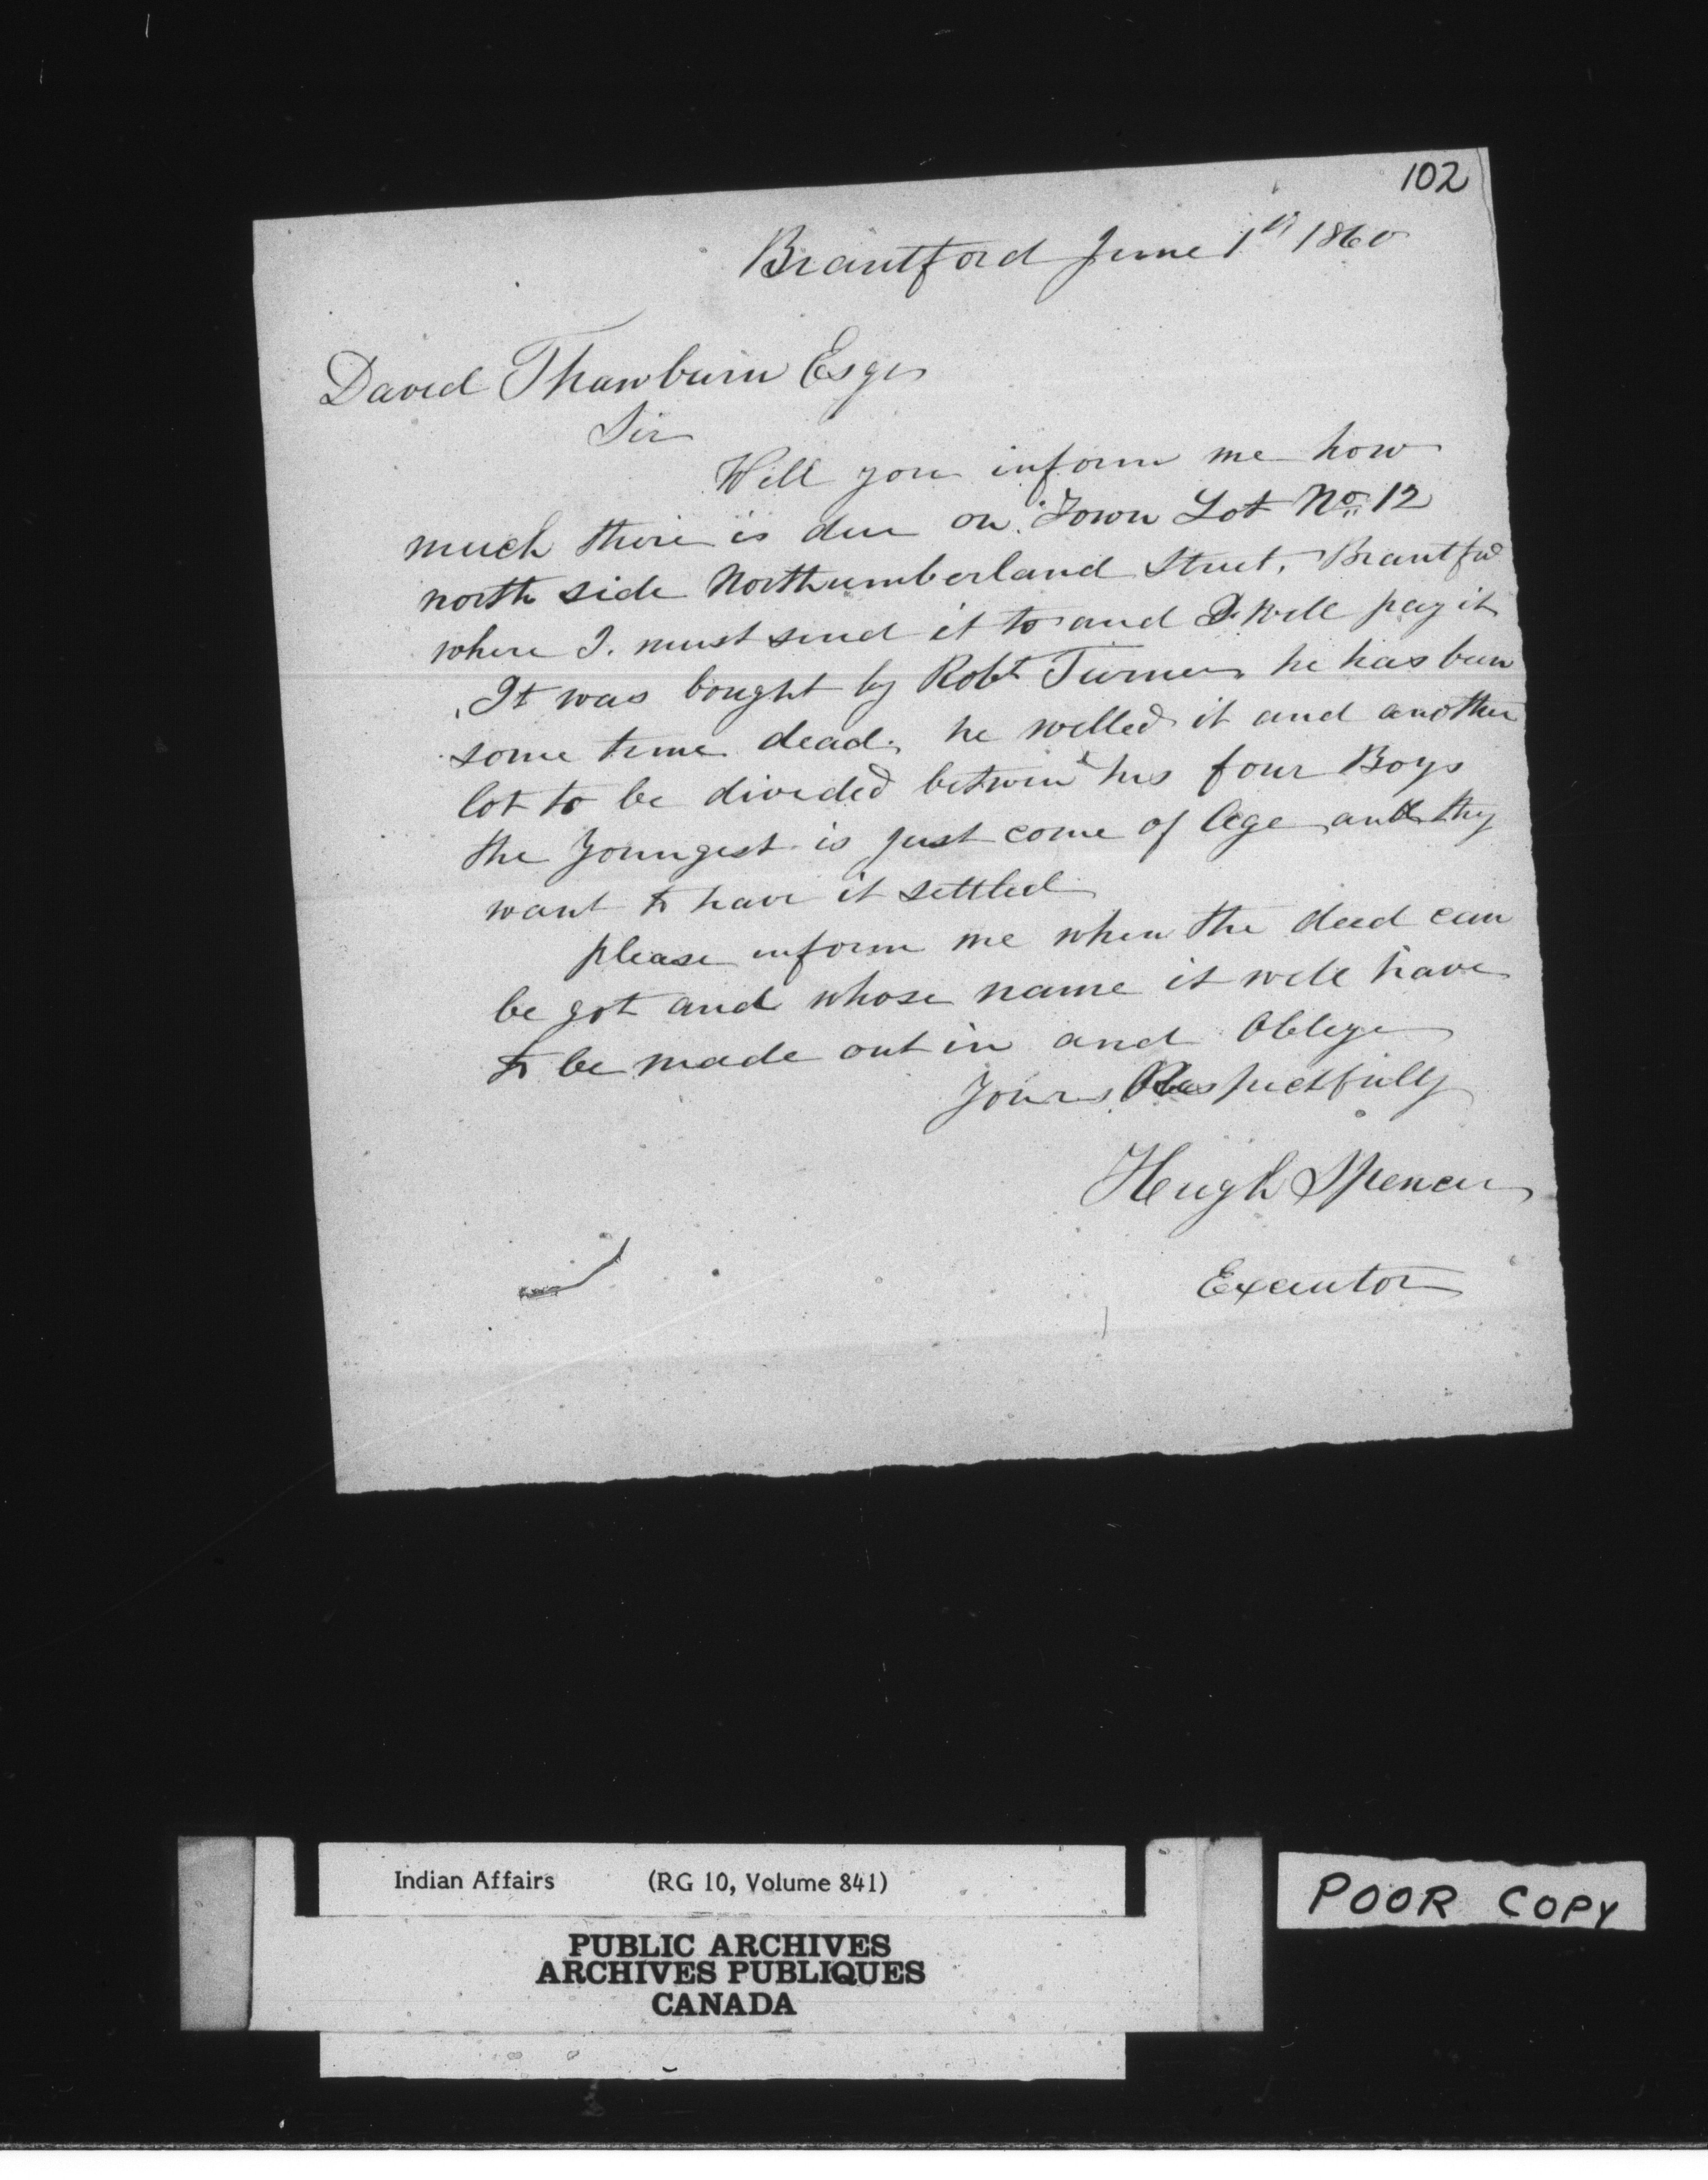 102
Brantford June 1st 1860
David Thawburn Esqr
Sir
Will you inform me how
much there is due on Town Lot No. 12
north side Northumberland Street, Brantfrd
where I. must send it to and I will pay it
It was bought by Robt Turner he has been
some time dead, he willed it and another
lot to be divided between his four Boys
the Youngest is just come of Age and they
want to have it settled
please inform me when the deed can
be got and whose name it will have
to be made out in and Oblige
Yours Respectfully
Hugh Spencer
Executor
Indian Affairs (RG 10, Volume 841)
PUBLIC ARCHIVES
ARCHIVES PUBLIQUES
CANADA
POOR COPY